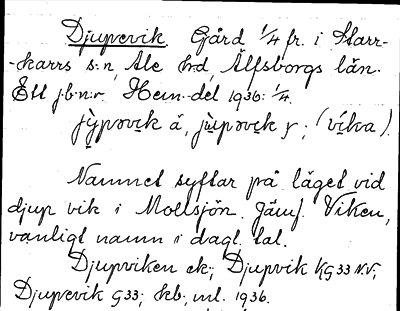 Djupevik. Gård 1/4 fr. i Starr-
-kärrs s:n, Ale h:d, Älfsborgs län.
Ett j.b:n:r. Hem.-del 1936: 1/4.
Namnet syftar på läget vid
djup vik i Mollsjön. Jämf. Viken,
vanligt namn i dagl. tal.
Djupviken ek; Djupvik KG33 N.V;
Djupevik G33; kb, ml. 1936.